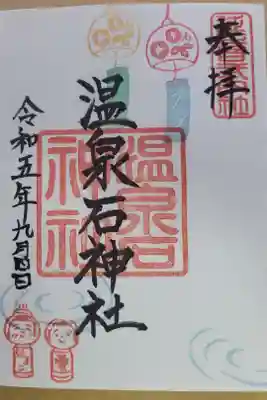 奉拝
温泉石神社
温泉石
神社
令和五年九月四日